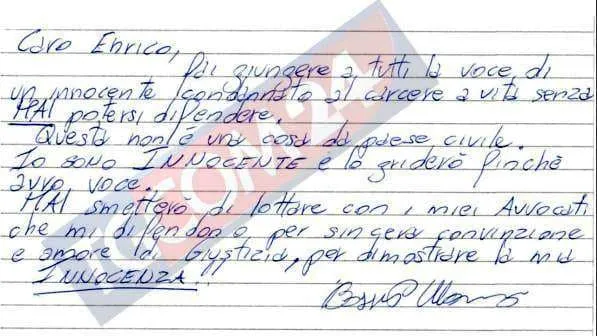 Caro Enrico,
fai giungere a tutti la voce di
un innocente condannato al carcere a vita senza
MAI potersi difendere.
Questa non è una cosa da paese civile.
Io sono INNOCENTE e lo griderò finché
avrò voce.
MAI smetterò di lottare con i miei Avvocati
che mi difendono per sincera convinzione
e amore di Giustizia, per dimostrare la mia
INNOCENZA.